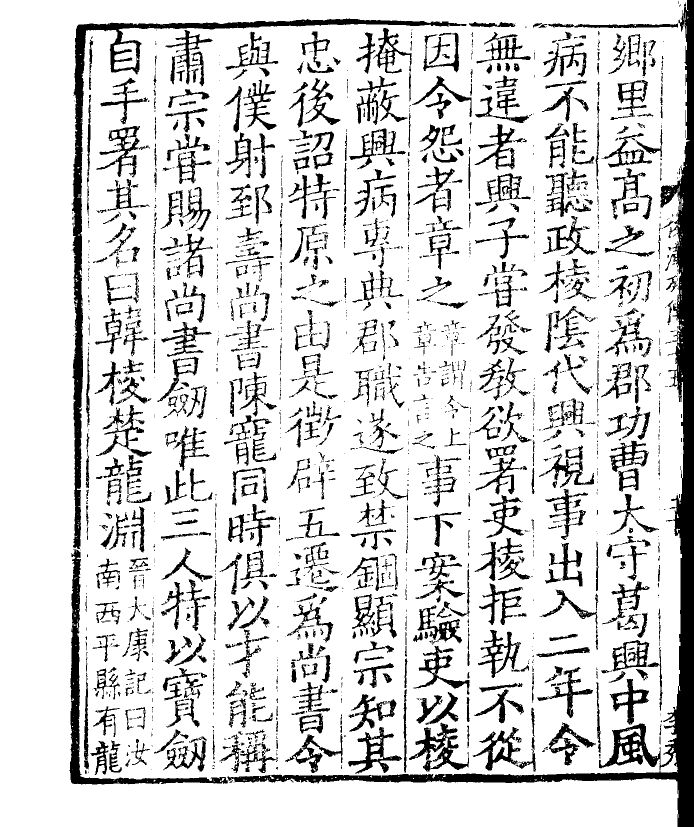 鄉里益髙之初爲郡功曹太守葛興中風
病不能聽政棱陰代興視事出入二年令
無違者興子嘗發敎欲署吏棱拒執不從
因令怨者章之章謂令上章告言之事下案驗吏以棱
掩蔽興病専典郡職遂致禁錮顯宗知其
忠後詔特原之由是徵辟五遷爲尚書令
與僕射郅壽尚書陳寵同時俱以才能稱
肅宗嘗賜諸尚書劒唯此三人特以寶劒
自手署其名曰韓棱楚龍淵晉大康記曰汝南西平縣有龍